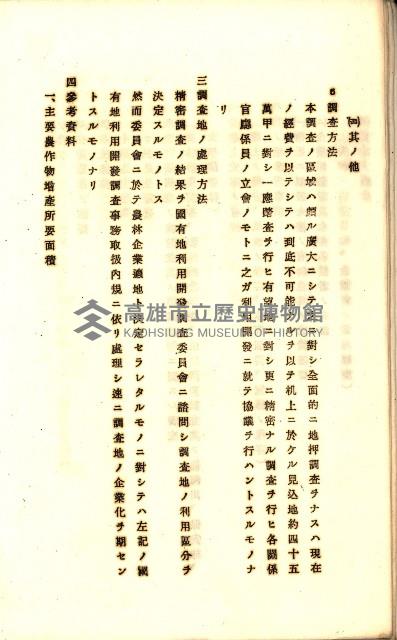 (ニ)其ノ他
6 調査方法
本調査ノ區域ハ頗ル廣大ニシテ之ニ對シ全面的ニ地押調査ヲナスハ現在
ノ經費ヲ以テシテハ到底不可能ナルヲ以テ机上ニ於ケル見込地約四十五
萬甲ニ對シ一應踏査ヲ行ヒ有望地ニ對シ更ニ精密ナル調査ヲ行ヒ各關係
官廳係員ノ立會ノモトニ之ガ利用開發ニ就テ協議ヲ行ハントスルモノナ
リ
三 調査地ノ處理方法
精密調査ノ結果ヲ國有地利用開發調査委員會ニ諮問シ調査地ノ利用區分ヲ
決定スルモノトス
然而委員會ニ於テ農林企業適地ト決定セラレタルモノニ對シテハ左記ノ國
有地利用開發調査事務取扱內規ニ依リ處理シ速ニ調査地ノ企業化ヲ期セン
トスルモノナリ
四 參考資料
一、主要農作物增產所要面積
高雄市立歷史博物館
KAOHSIUNG MUSEUM OF HISTORY